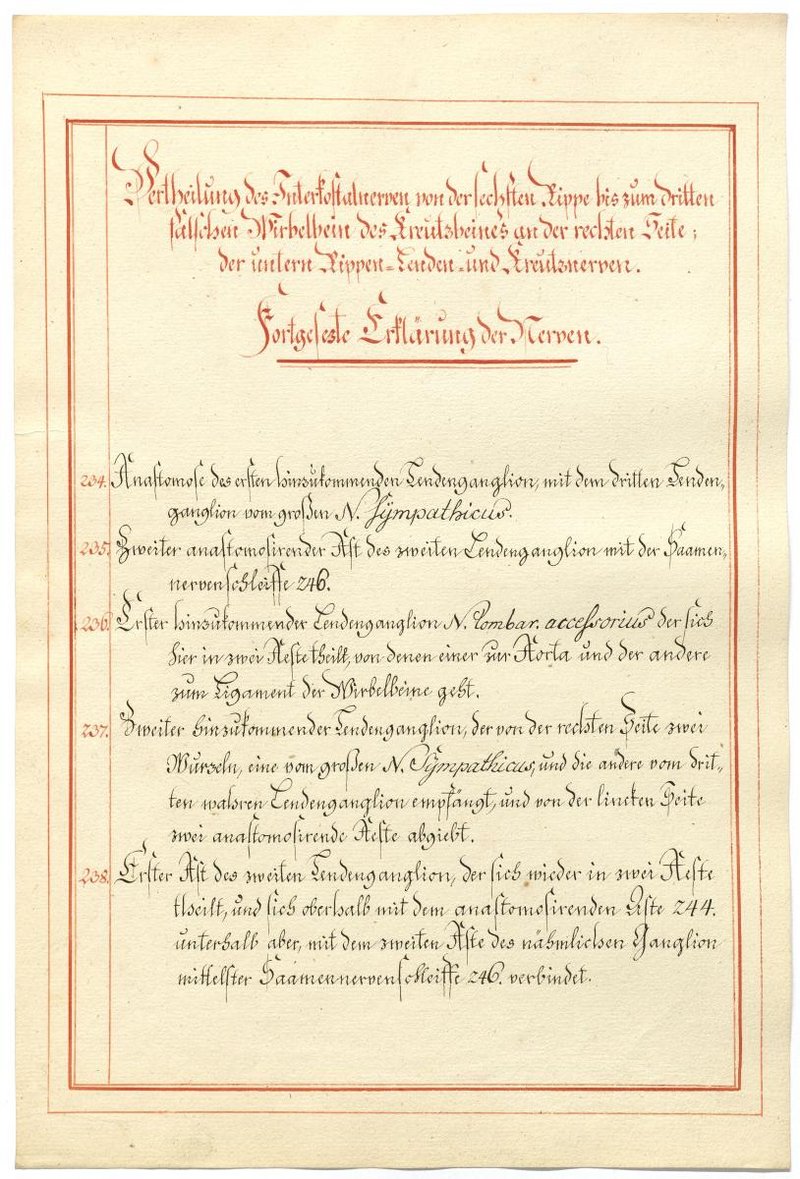 Vertheilung des Interkostalnerven von der sechsten Rippe bis zum dritten
falschen Wirbelbein des Kreutzbeines an der rechten Seite;
der untern Rippen-Lenden-und Kreutznerven.
Fortgesezte Erklärung der Nerven.
234. Anastomose des ersten hinzukommenden Lendenganglion, mit dem dritten Lenden-
ganglion vom großen N. Sÿmpathicus.
235. Zweiter anastomosirender Ast des zweiten Lendenganglion mit der Saamen-
nervenschleiffe 246.
236. Erster hinzukommender Lendenganglion N. Lombar. accessorius der sich
hier in zwei Aeste theilt, von denen einer zur Aorta und der andere
zum Ligament der Wirbelbeine geht.
237. Zweiter hinzukommender Lendenganglion, der von der rechten Seite zwei
Wurzeln, eine vom großen N. Sÿmpathicus, und die andere vom drit-
ten wahren Lendenganglion empfängt, und von der lincken Seite
zwei anastomosirende Aeste abgiebt.
238. Erster Ast des zweiten Lendenganglion, der sich wieder in zwei Aeste
theilt, und sich oberhalb mit dem anastomosirenden Aste 244.
unterhalb aber, mit dem zweiten Aste des nähmlichen Ganglion
mittelster Saamennervenschleiffe 246. verbindet.